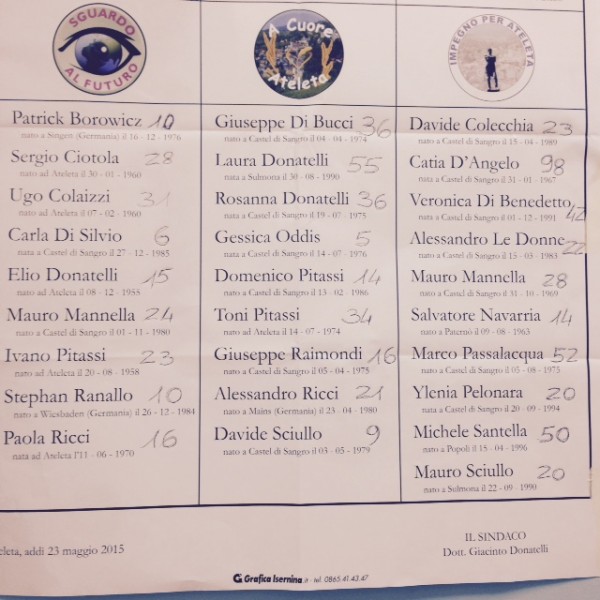 SGUARDO
AL FUTURO
Patrick Borowicz 10
nato a Singen (Germania) il 16 - 12 - 1976
Sergio Ciotola 28
nato ad Ateleta il 30 - 01 - 1960
Ugo Colaizzi 31
nato ad Ateleta il 07 - 02 - 1960
Carla Di Silvio 6
nata a Castel di Sangro il 27 - 12 - 1985
Elio Donatelli 15
nato ad Ateleta il 08 - 12 - 1955
Mauro Mannella 24
nato a Castel di Sangro il 01 - 11 - 1980
Ivano Pitassi 23
nato ad Ateleta il 20 - 08 - 1958
Stephan Ranallo 10
nato a Wiesbaden (Germania) il 26 - 12 - 1984
Paola Ricci 16
nata ad Ateleta l'11 - 06 - 1970
A Cuore
Ateleta
Giuseppe Di Bucci 36
nato a Castel di Sangro il 04 - 04 - 1974
Laura Donatelli 55
nata a Sulmona il 30 - 08 - 1990
Rosanna Donatelli 36
nata a Castel di Sangro il 19 - 07 - 1975
Gessica Oddis 5
nata a Castel di Sangro il 14 - 07 - 1976
Domenico Pitassi 14
nato a Castel di Sangro il 13 - 02 - 1986
Toni Pitassi 34
nato ad Ateleta il 14 - 07 - 1974
Giuseppe Raimondi 16
nato a Castel di Sangro il 05 - 04 - 1975
Alessandro Ricci 21
nato a Mainz (Germania) il 23 - 04 - 1980
Davide Sciullo 9
nato a Castel di Sangro il 03 - 05 - 1979
IMPEGNO PER ATELETA
Davide Colecchia 23
nato a Castel di Sangro il 15 - 04 - 1989
Catia D'Angelo 98
nata a Castel di Sangro il 31 - 01 - 1967
Veronica Di Benedetto 42
nata a Castel di Sangro il 01 - 12 - 1991
Alessandro Le Donne 22
nato a Castel di Sangro il 15 - 03 - 1983
Mauro Mannella 28
nato a Castel di Sangro il 31 - 10 - 1969
Salvatore Navarria 14
nato a Paternò il 09 - 08 - 1963
Marco Passalacqua 52
nato a Castel di Sangro il 05 - 08 - 1975
Ylenia Pelonara 20
nata a Castel di Sangro il 20 - 09 - 1994
Michele Santella 50
nato a Popoli il 15 - 04 - 1996
Mauro Sciullo 20
nato a Sulmona il 22 - 09 - 1990
addì 23 maggio 2015
IL SINDACO
Dott. Giacinto Donatelli
Grafica Isernina tel. 0865.41.43.47